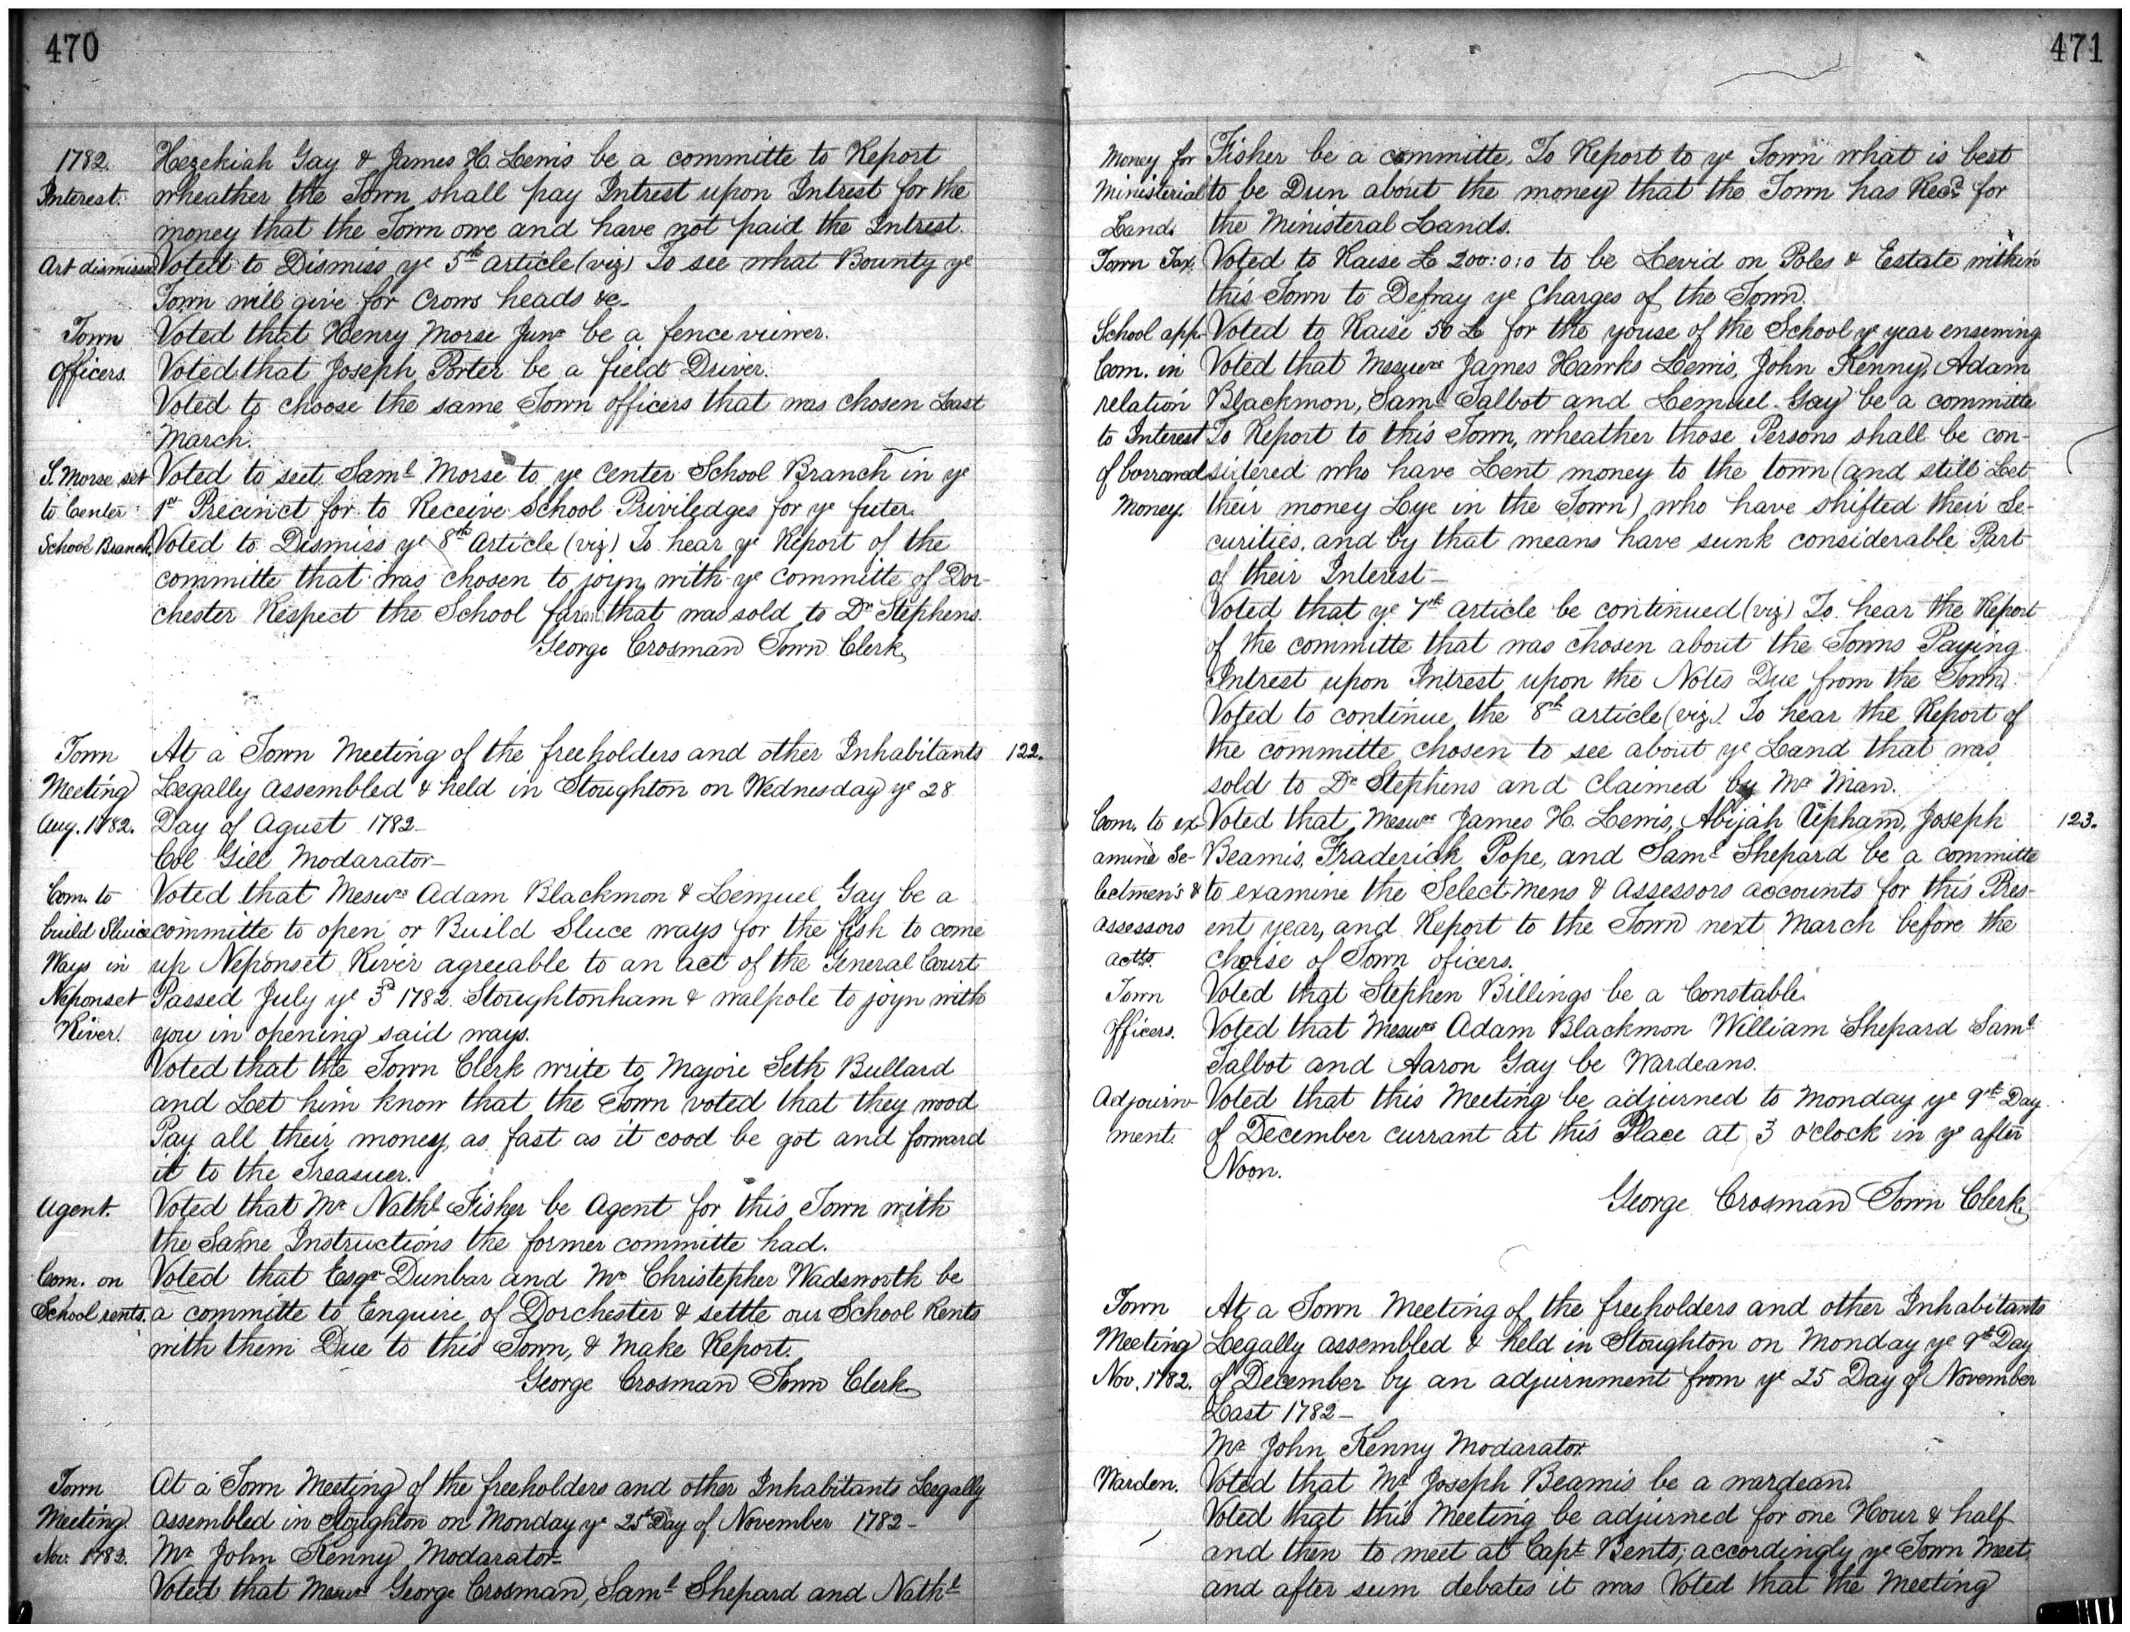 470
1782. Hezekiah Gay & James H. Lewis be a committe to Report
Interest. wheather the Town shall pay Intrest upon Intrest for the
money that the Town owe and have not paid the Intrest.
Art dismissd Voted to Dismiss ye 5th article (viz) To see what Bounty ye
Town will give for Crows heads &c-
Town Voted that Henry Morse Junr be a fence viewer.
Officers. Voted that Joseph Porter be a field Driver.
Voted to choose the same Town officers that was chosen Last
March.
S. Morse set Voted to seet Saml Morse to ye Center School Branch in ye
to Center 1st Precinct for to Receive School Priviledges for ye futer.
School Branch. Voted to Dismiss ye 8th article (viz) To hear ye Report of the
committe that was chosen to joyn with ye committe of Dor-
chester Respect the School farm that was sold to Dr Stephens.
George Crosman Town Clerk.
Town At a Town Meeting of the freeholders and other Inhabitants 122.
Meeting Legally assembled & held in Stoughton on Wednesday ye 28
Aug. 1782. Day of Agust 1782-
Col Gill Modarator-
Com. to Voted that Mesurs Adam Blackmon & Lemuel Gay be a
build Sluice committe to open or Build Sluce ways for the fish to come
Ways in up Neponset River agreeable to an act of the General Court
Neponset Passed July ye 3d 1782. Stoughtonham & walpole to joyn with
River. you in opening said ways.
Voted that the Town Clerk write to Majore Seth Bullard
and Let him know that the Town voted that they wood
Pay all their money as fast as it cood be got and forward
it to the Treasuer.
Agent. Voted that Mr Nathl Fisher be Agent for this Town with
the Same Instructions the former committe had.
Com. on Voted that Esqr Dunbar and Mr Christepher Wadsworth be
School rents. a committe to Enquire of Dorchester & settle our School Rents
with them Due to this Town, & make Report.
George Crosman Town Clerk.
Town At a Town Meeting of the freeholders and other Inhabitants Leegally
Meeting. assembled in Stoughton on Monday ye 25th Day of November 1782-
Nov. 1782. Mr John Kenny Modarator-
Voted that Mesurs George Crosman, Saml Shepard and Nathl
471
Money for Fisher be a committe To Report to ye Town what is best
Ministerial to be Dun about the money that the Town has Recd for
Land. the Ministeral Lands.
Town Tax. Voted to Raise £ 200:0:0 to be Levid on Poles & Estate within
this Town to Defray ye Charges of the Town.
School app. Voted to Raise 50 £ for the youse of the School ye year ensewing
Com. in Voted that Mesurs James Hawks Lewis, John Kenny, Adam
relation Blackmon, Saml Talbot and Lemuel Gay be a committe
to Interest To Report to this Town, wheather those Persons shall be con-
of borrowed sidered who have Lent money to the town (and still Let
Money. their money Lye in the Town) who have shifted their Se-
curities, and by that means have sunk considerable Part
of their Interest-
Voted that ye 7th article be continued (viz) To hear the Report
of the committe that was chosen about the Towns Paying
Intrest upon Intrest upon the Notes Due from the Town.
Voted to continue the 8th article (viz). To hear the Report of
the committe chosen to see about ye Land that was
sold to Dr Stephens and claimed by Mr Man.
Com. to ex- Voted that Mesurs James H. Lewis, Abijah Upham, Joseph 123.
amine Se- Beamis, Fraderick Pope, and Saml Shepard be a committe
lectmen's & to examine the Select-mens & assessors accounts for this Pres-
assessors ent year, and Report to the Town next March before the
accts. choise of Town oficers.
Town Voted that Stephen Billings be a Constable.
Officers. Voted that Mesurs Adam Blackmon William Shepard Saml
Talbot and Aaron Gay be Wardeans.
Adjourn- Voted that this Meeting be adjurned to Monday ye 9th Day
ment. of December currant at this Place at 3 o'clock in ye after
Noon.
George Crosman Town Clerk.
Town At a Town Meeting of the freeholders and other Inhabitants
Meeting Legally assembled & held in Stoughton on Monday ye 9th Day
Nov. 1782. of December by an adjurnment from ye 25 Day of November
Last 1782-
Mr John Kenny Modarator.
Warden. Voted that Mr Joseph Beamis be a wardean.
Voted that this Meeting be adjurned for one Hour & half
and then to meet at Capt Bents; accordingly ye Town Meet
and after sum debates it was Voted that the Meeting